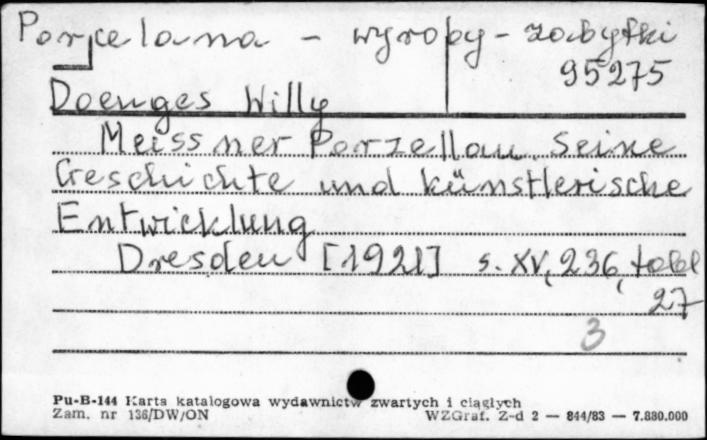 Porcelana - wyroby - zabytki
95275
Doenges Willy
Meissner Porzellan. Seine
Geschichte und künstlerische
Entwicklung
Dresden [1921] s. XV, 236, tabl
27
3
Pu-B-144 Karta katalogowa wydawnictw zwartych i ciągłych
Zam. nr 136/DW/ON WZGraf. Z-d 2 — 844/83 — 7.880.000